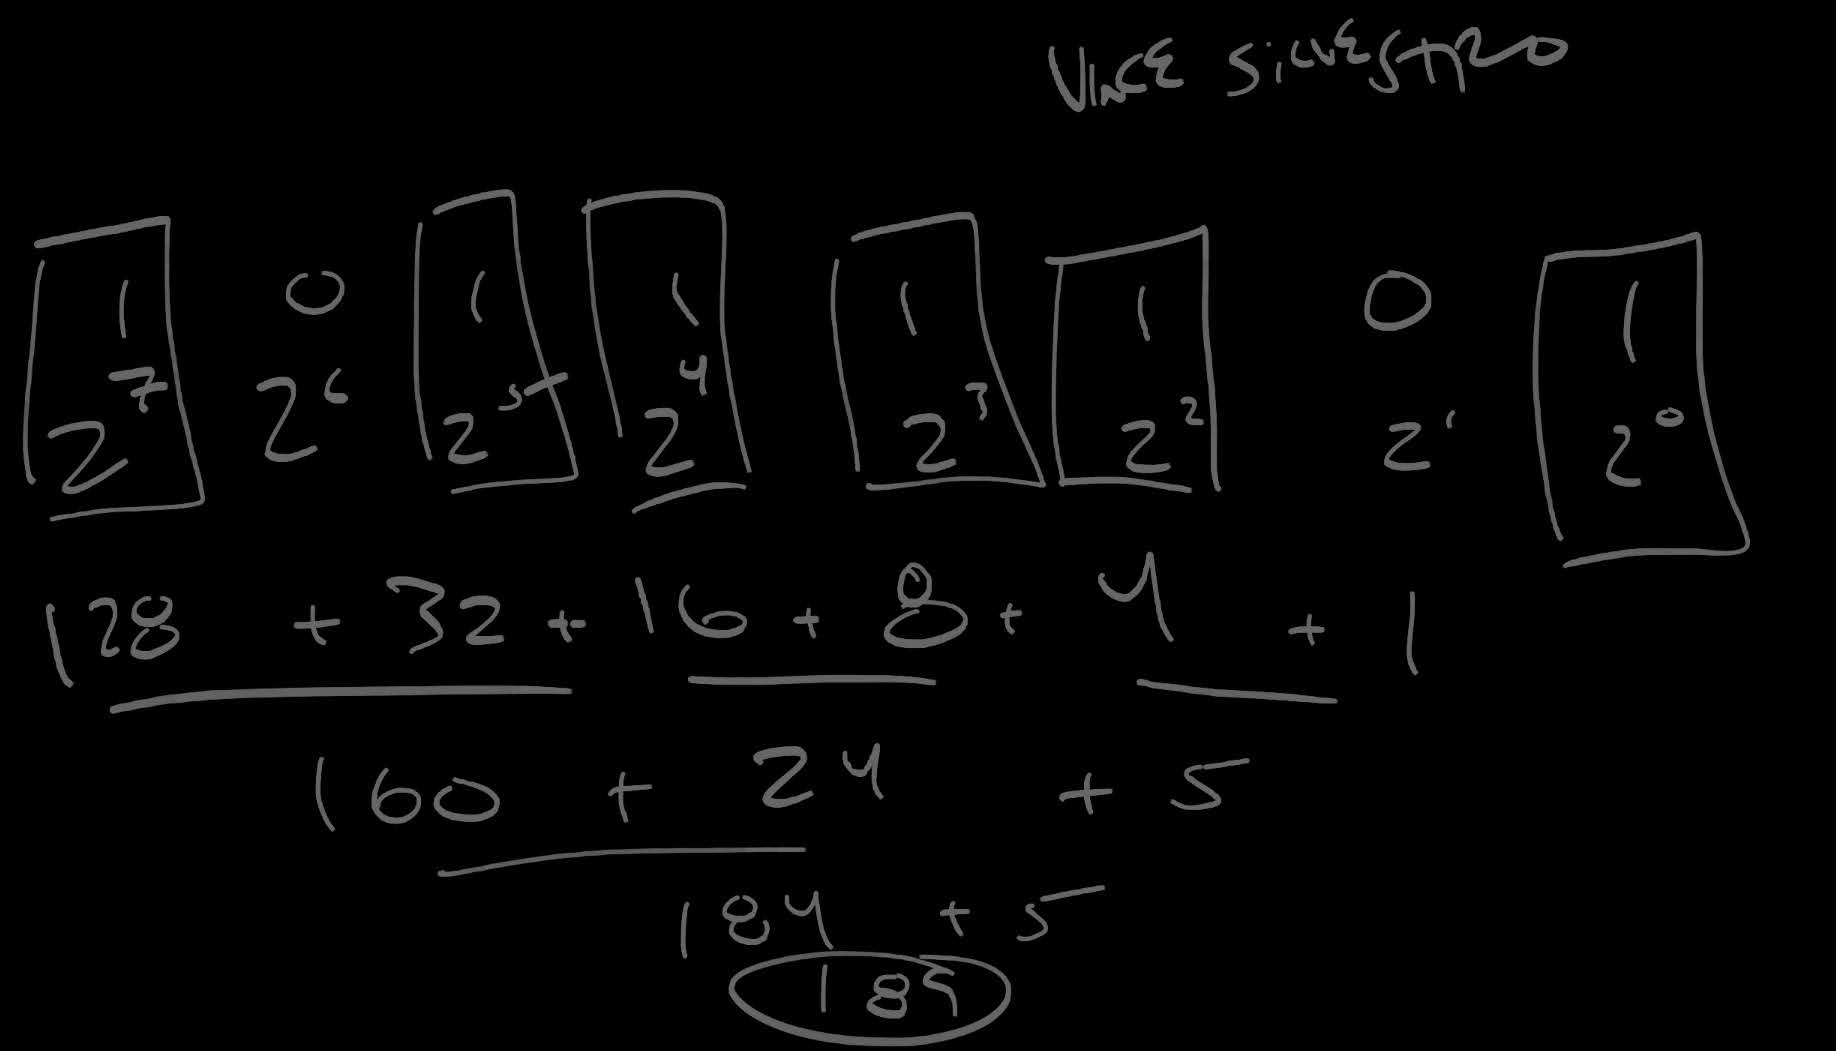 VINCE SILVESTRO
1 0 1 1 1 1 0 1
2⁷ 2⁶ 2⁵ 2⁴ 2³ 2² 2¹ 2⁰
128 + 32 + 16 + 8 + 4 + 1
160 + 24 + 5
184 + 5
189